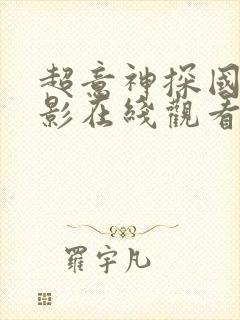 超意神探國
影在綫觀看
羅宇凡